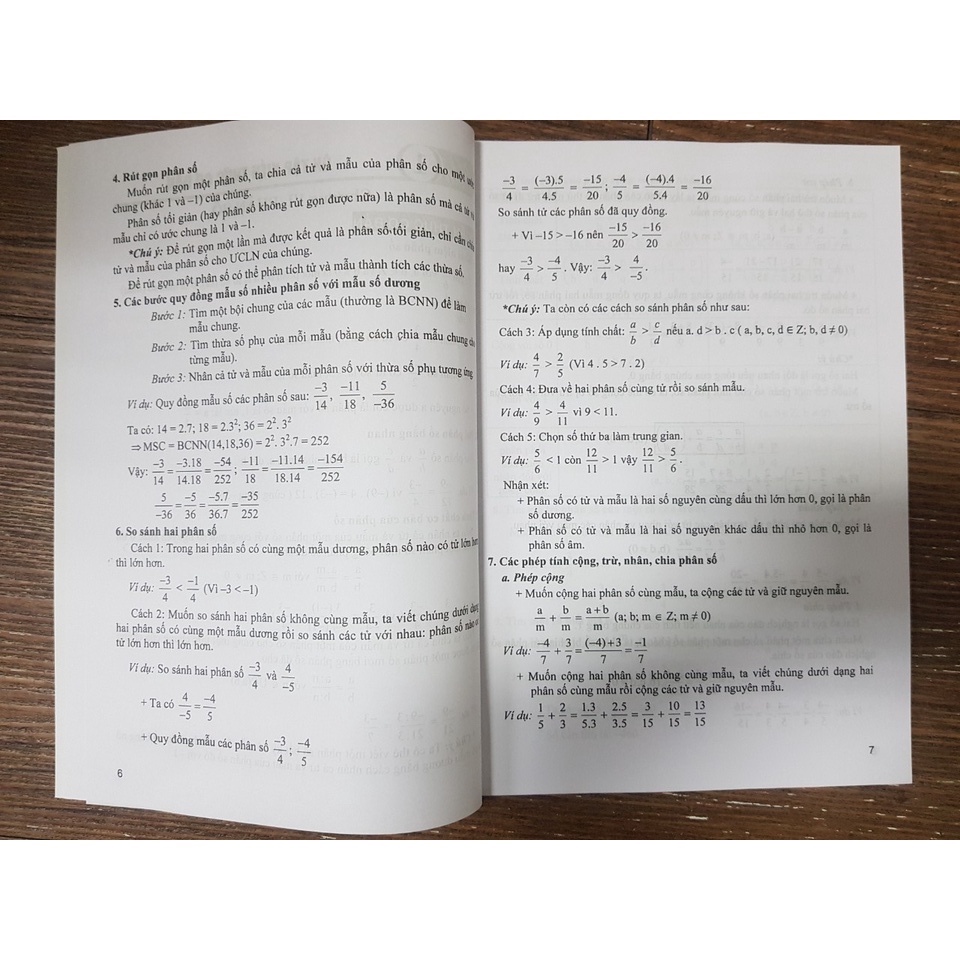 4. Rút gọn phân số
Muốn rút gọn một phân số, ta chia cả tử và mẫu của phân số cho một ước
chung (khác 1 và –1) của chúng.
Phân số tối giản (hay phân số không rút gọn được nữa) là phân số mà cả tử và
mẫu chỉ có ước chung là 1 và –1.
*Chú ý: Để rút gọn một lần mà được kết quả là phân số tối giản, chỉ cần chia
tử và mẫu của phân số cho ƯCLN của chúng.
Để rút gọn một phân số có thể phân tích tử và mẫu thành tích các thừa số.
5. Các bước quy đồng mẫu số nhiều phân số với mẫu số dương
Bước 1: Tìm một bội chung của các mẫu (thường là BCNN) để làm
mẫu chung.
Bước 2: Tìm thừa số phụ của mỗi mẫu (bằng cách chia mẫu chung cho
từng mẫu).
Bước 3: Nhân cả tử và mẫu của mỗi phân số với thừa số phụ tương ứng.
Ví dụ: Quy đồng mẫu số các phân số sau: –3/14, –11/18, 5/–36
Ta có: 14 = 2.7; 18 = 2.3²; 36 = 2². 3²
⇒ MSC = BCNN(14,18,36) = 2². 3².7 = 252
Vậy: –3/14 = –3.18/14.18 = –54/252; –11/18 = –11.14/18.14 = –154/252
5/–36 = –5/36 = –5.7/36.7 = –35/252
6. So sánh hai phân số
Cách 1: Trong hai phân số có cùng một mẫu dương, phân số nào có tử lớn hơn
thì lớn hơn.
Ví dụ: –3/4 < –1/4 (Vì –3 < –1)
Cách 2: Muốn so sánh hai phân số không cùng mẫu, ta viết chúng dưới dạng
hai phân số có cùng một mẫu dương rồi so sánh các tử với nhau: phân số nào có
tử lớn hơn thì lớn hơn.
Ví dụ: So sánh hai phân số –3/4 và 4/–5
+ Ta có 4/–5 = –4/5
+ Quy đồng mẫu các phân số –3/4; –4/5
6
–3/4 = (–3).5/4.5 = –15/20; –4/5 = (–4).4/5.4 = –16/20
So sánh tử các phân số đã quy đồng.
+ Vì –15 > –16 nên –15/20 > –16/20
hay –3/4 > –4/5. Vậy: –3/4 > 4/–5.
*Chú ý: Ta còn có các cách so sánh phân số như sau:
Cách 3: Áp dụng tính chất: a/b > c/d nếu a. d > b . c ( a, b, c, d ∈ Z; b, d ≠ 0)
Ví dụ: 4/7 > 2/5 (Vì 4 . 5 > 7 . 2)
Cách 4: Đưa về hai phân số cùng tử rồi so sánh mẫu.
Ví dụ: 4/9 > 4/11 vì 9 < 11.
Cách 5: Chọn số thứ ba làm trung gian.
Ví dụ: 5/6 < 1 còn 12/11 > 1 vậy 12/11 > 5/6.
Nhận xét:
+ Phân số có tử và mẫu là hai số nguyên cùng dấu thì lớn hơn 0, gọi là phân
số dương.
+ Phân số có tử và mẫu là hai số nguyên khác dấu thì nhỏ hơn 0, gọi là
phân số âm.
7. Các phép tính cộng, trừ, nhân, chia phân số
a. Phép cộng
+ Muốn cộng hai phân số cùng mẫu, ta cộng các tử và giữ nguyên mẫu.
a/m + b/m = a+b/m (a; b; m ∈ Z; m ≠ 0)
Ví dụ: –4/7 + 3/7 = (–4)+3/7 = –1/7
+ Muốn cộng hai phân số không cùng mẫu, ta viết chúng dưới dạng hai
phân số cùng mẫu rồi cộng các tử và giữ nguyên mẫu.
Ví dụ: 1/5 + 2/3 = 1.3/5.3 + 2.5/3.5 = 3/15 + 10/15 = 13/15
7